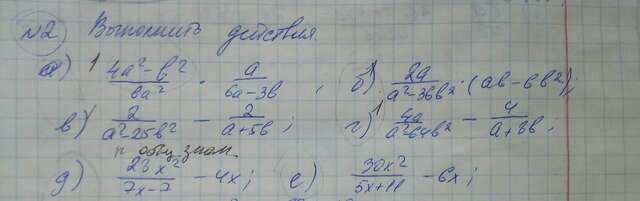 №2 Выполнить действия.
а) (4a² - b²)/(6a²) · a/(6a - 3b), б) 2a/(a² - 36b²) · (ab - 6b²);
в) 2/(a² - 25b²) - 2/(a + 5b); г) 4a/(a² 64b²) - 4/(a + 8b),
к общ знам.
д) (28x²)/(7x - 7) - 4x; е) (30x²)/(5x + 11) - 6x;